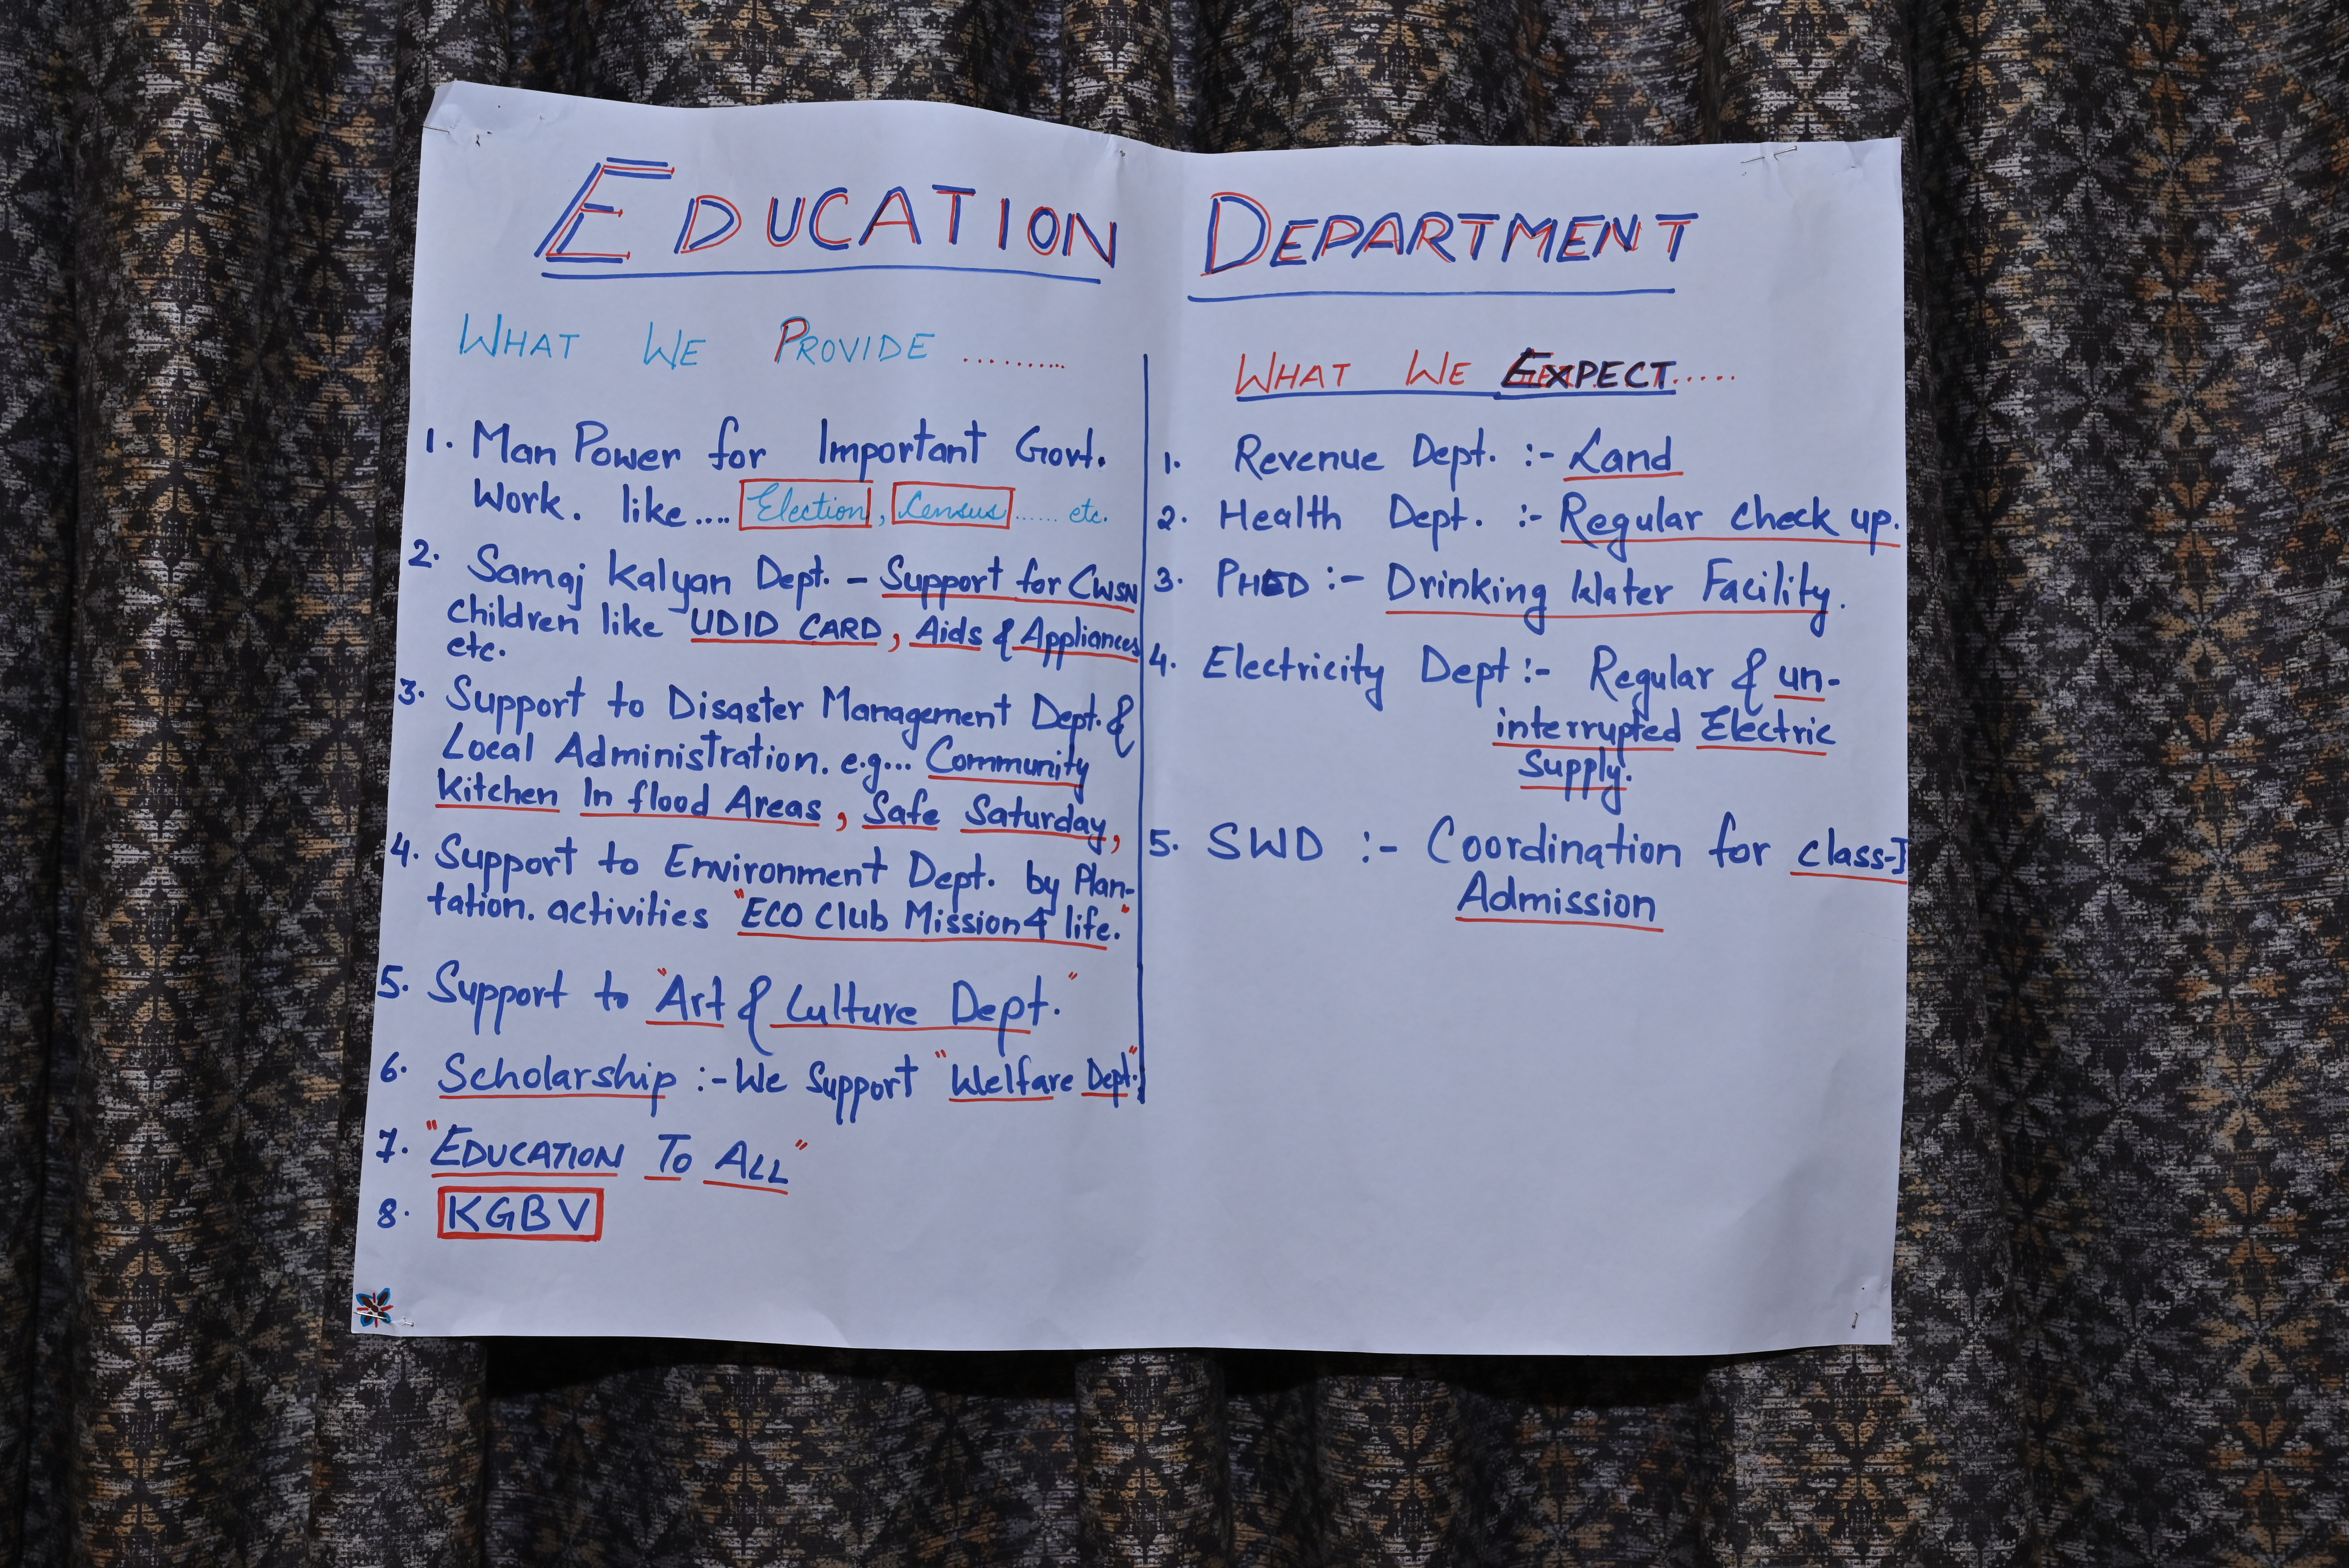 EDUCATION DEPARTMENT
WHAT WE PROVIDE .........
1. Man Power for Important Govt.
Work. like.... Election, Census ...... etc.
2. Samaj Kalyan Dept. - Support for CWSN
children like UDID CARD, Aids & Appliances
etc.
3. Support to Disaster Management Dept. &
Local Administration. e.g... Community
Kitchen In flood Areas, Safe Saturday,
4. Support to Environment Dept. by Plan-
tation. activities "ECO Club Mission 4 life."
5. Support to "Art & Culture Dept."
6. Scholarship :- We Support "Welfare Dept."
7. "EDUCATION TO ALL"
8. KGBV
WHAT WE EXPECT.....
1. Revenue Dept. :- Land
2. Health Dept. :- Regular Check up.
3. PHED :- Drinking Water Facility.
4. Electricity Dept :- Regular & un-
interrupted Electric
Supply.
5. SWD :- Coordination for class-I
Admission